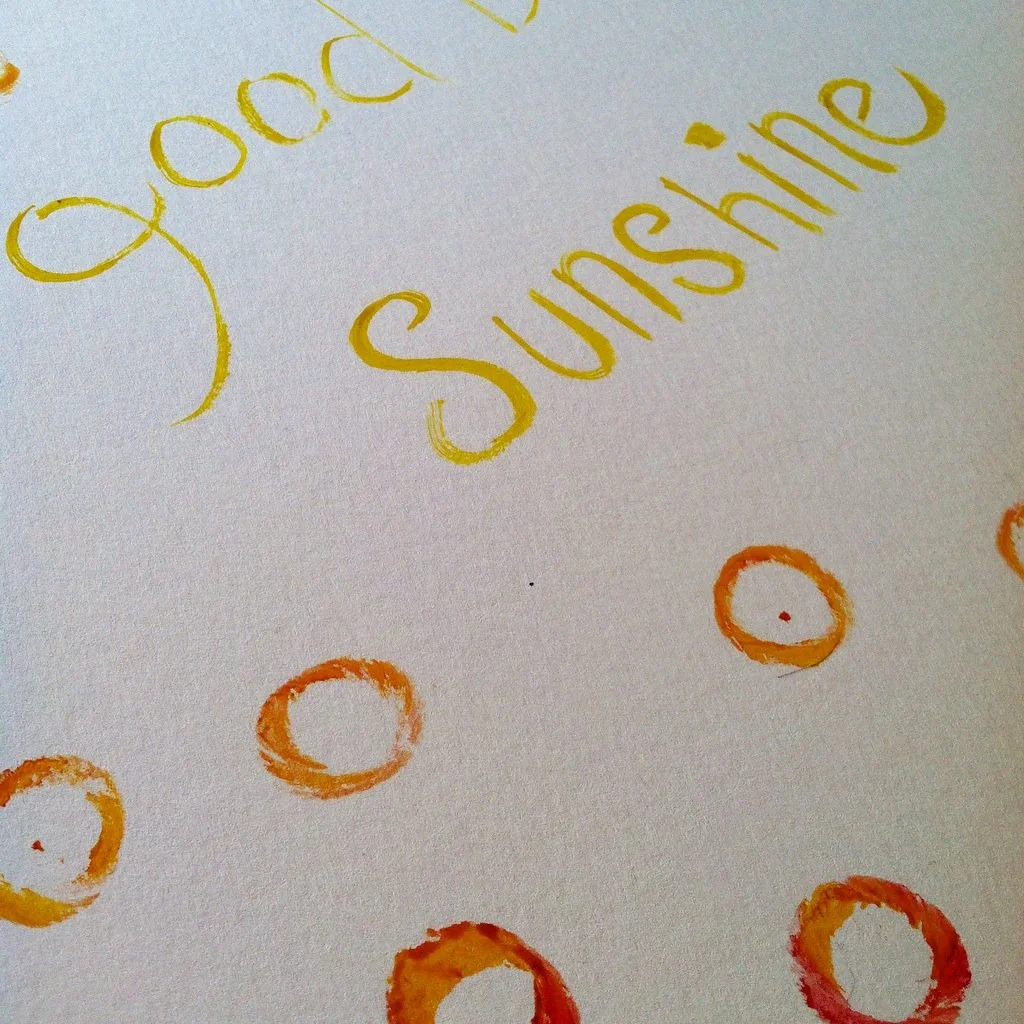 good
Sunshine